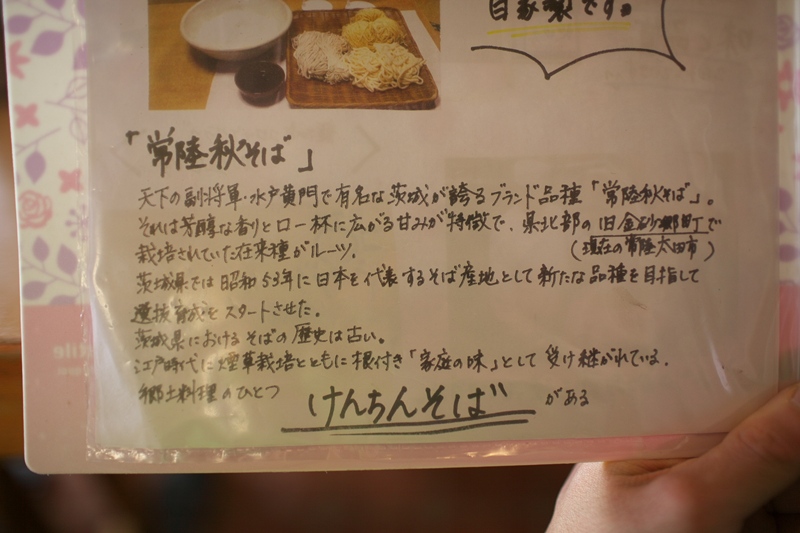 自家製です。
「常陸秋そば」
天下の副将軍・水戸黄門で有名な茨城が誇るブランド品種「常陸秋そば」。
それは芳醇な香りと口一杯に広がる甘みが特徴で、県北部の旧金砂郷町で
(現在の常陸太田市)
栽培されていた在来種がルーツ。
茨城県では昭和53年に日本を代表するそば産地として新たな品種を目指して
選抜育成をスタートさせた。
茨城県におけるそばの歴史は古い。
江戸時代に煙草栽培とともに根付き「家庭の味」として受け継がれている。
郷土料理のひとつ けんちんそば がある